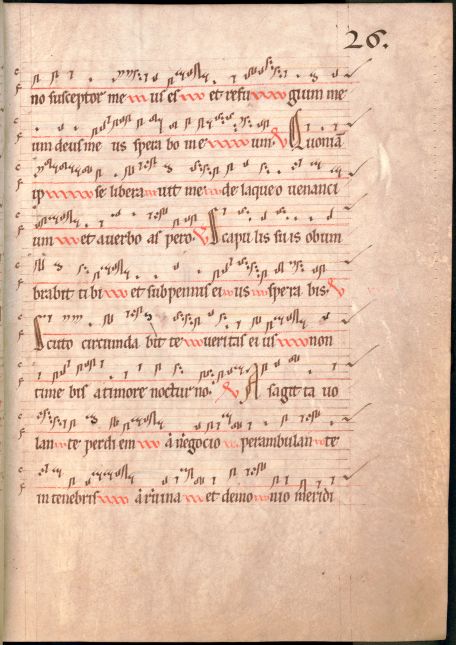 26.
no susceptor me us es et refu gium me
um deus me us spera bo in e um. Quoniā
ip se libera uit me de laqueo uenanci
um et a uerbo as pero. Scapu lis su is obum
brabit ti bi et sub pennis ei us spera bis.
Scuto circunda bit te ueritas ei us non
time bis a timore noctur no. A sagit ta uo
lan te per di em ā negocio perambulan te
in tenebris ā ruina et demo nio meridi